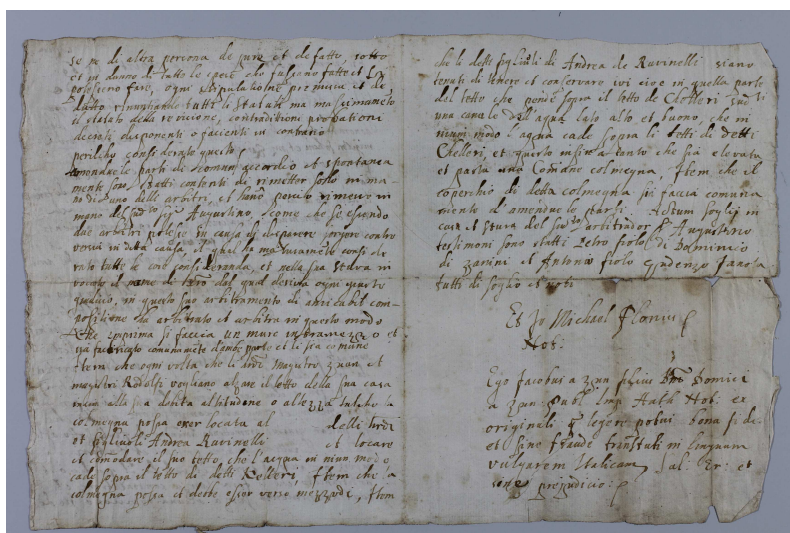 se pe di altra persona de jure et de fatto, sotto
et in danno di tutte le spese che fussano fatte et si
potessino fare, ogni stipulatione premissa et de
dutto rinuntiando tutti li statuti ma massimamete
il statuto della revisione, contraditione probationi
decreti disponenti o facienti in contrario
perilche considerato questo
Amendue le parti di comun accordio et spontanea
mente sono statti contenti di rimetter sollo in ma-
no di uno delli arbitri, et hano percio rimesso in
mano del Ser Augustino, come che se essendo
due arbitri potesse in causa di disparere sorgere contro
versia in detta causa, il qual ha maturamente conside
rato tutte le cose consideranda, et nella sua stuva in
vocato il nome di
giudicio, in questo suo arbitramento di amicabil com-
positione ha arbitrato et arbitra in questo modo
Che imprima si faccia un muro in tramezzo et
sia fabricato comunamete d'ambe parti et li sia comune
Item che ogni volta che li magistro Zuan et
magistro Rodolfo vogliano alzare il tetto della sua casa
insin alla sua debita altitudine o altezza talche la
colmegna possa esser locata al delli
et figliuoli Andrea Ravinelli et locare
et comodare il suo tetto, che l'acqua in niun modo
cade sopra il tetto di detti Kelleri, Item che la
colmegna possa et debbe esser verso mezzodi, Item
che li dette figliuoli di Andrea de Ravinelli siano
tenuti di tenere et conservare ivi cioe in quella parte
del tetto che pende sopra il tetto de Chelleri
una canale dell'aqua lato alto et buono, che in
niun modo l'aqua cade sopra li tetti di detti
Chelleri, et questo insin a tanto che sia elevata
et parta una comune colmegna, Item che il
coperchio di detta colmegna si faccia comuna
mente d'amendue le parti. Actum Soglij in
casa et stuva del arbitrador Augustino
testimoni sono statti Petro fiolo di Dominico
di Zanini et Antonio fiolo Gaudenzo
tutti di Soglio et noti
Et Jo Michael Florius
Not:
Ego Jacobus a Zun filius Dni Domici
a Zun Publ: Imp: Auth: Not: ex
originali q legere potui bona fi de
et sine fraude transtuli in linguam
vulgarem Italicam, Sal: Er: et
sine prejudicio: